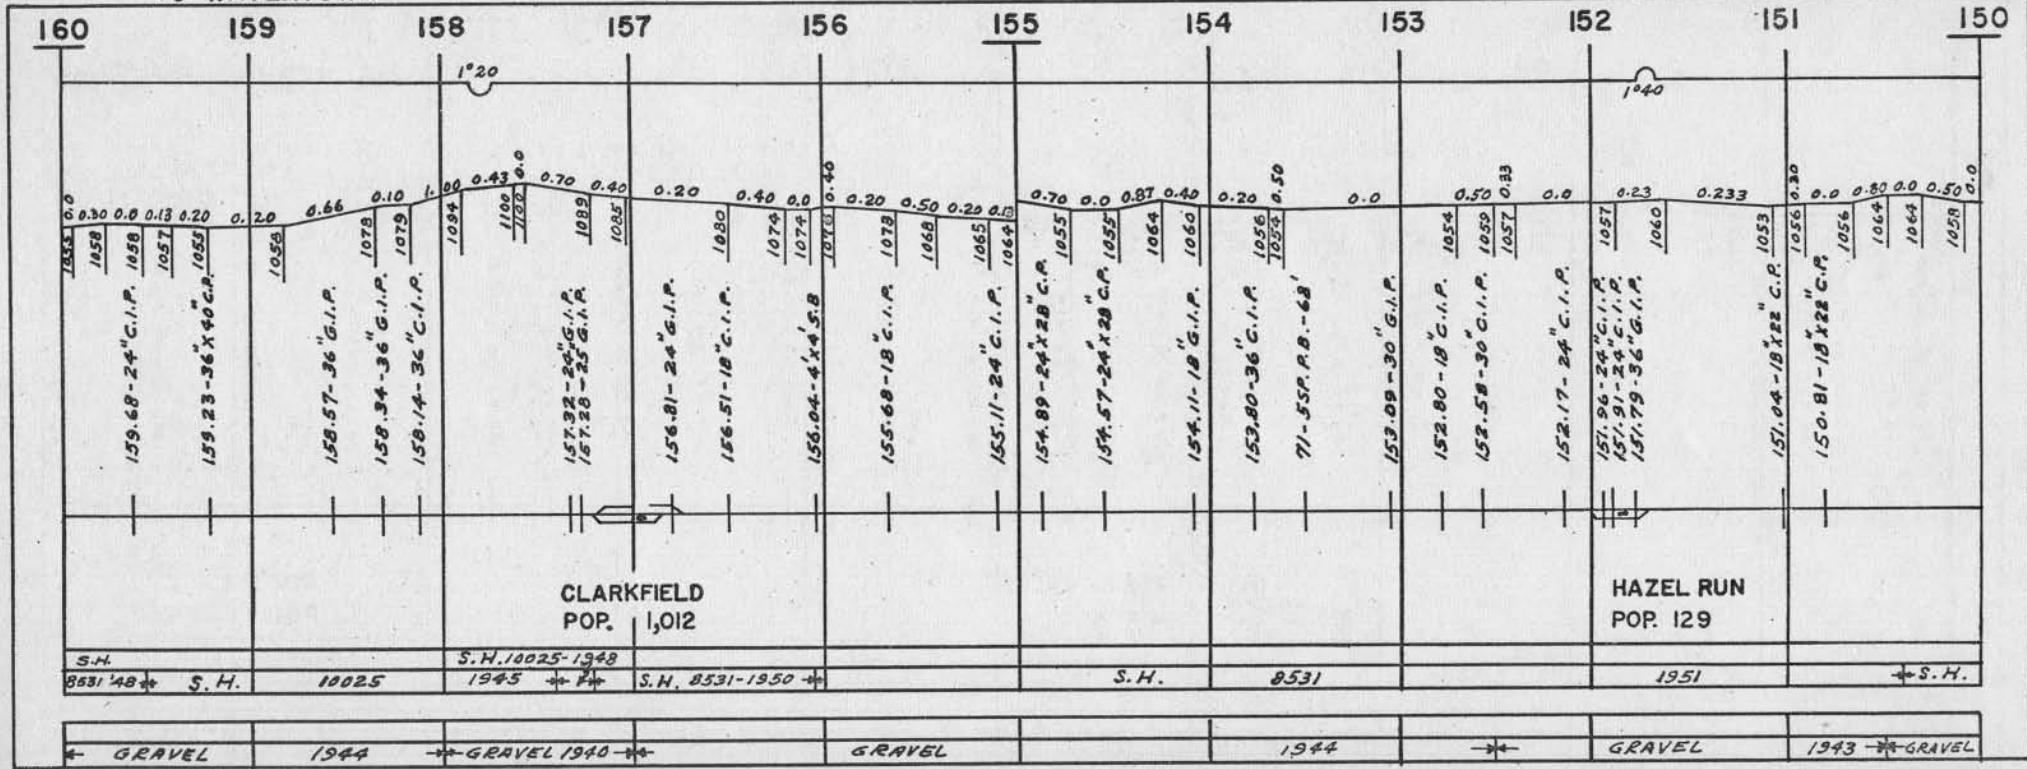 160 159 158 157 156 155 154 153 152 151 150
1°20
1°40
0.0 0.30 0.0 0.13 0.20 0.120 0.66 0.10 1.00 0.43 0.0 0.70 0.40 0.20 0.40 0.0 0.40 0.20 0.50 0.20 0.13 0.70 0.0 0.87 0.40 0.20 0.50 0.0 0.50 0.33 0.0 0.23 0.233 0.30 0.0 0.80 0.0 0.50 0.0
1055 1058 1058 1057 1055 1056 1078 1079 1094 1100 1100 1089 1085 1080 1074 1074 1078 1068 1065 1064 1055 1055 1064 1060 1056 1054 1054 1059 1057 1057 1060 1053 1056 1056 1064 1064 1058
159.68-24" C.I.P.
159.23-36"X40" C.P.
158.57-36" G.I.P.
158.34-36" G.I.P.
158.14-36" C.I.P.
157.32-24" G.I.P.
157.28-25 G.I.P.
156.81-24" G.I.P.
156.51-18" C.I.P.
156.04-4'X4' S.B
155.68-18" C.I.P.
155.11-24" C.I.P.
154.89-24"X28" C.P.
154.57-24"X28" C.P.
154.11-18" G.I.P.
153.80-36" C.I.P.
71-5SP. P.B.-68'
153.09-30" G.I.P.
152.80-18" C.I.P.
152.58-30" C.I.P.
152.17-24" C.I.P.
151.96-24" C.I.P.
151.91-24" C.I.P.
151.79-36" G.I.P.
151.04-18"X22" C.P.
150.81-18"X22" C.P.
CLARKFIELD
POP. 1,012
HAZEL RUN
POP. 129
S.H. S.H. 10025-1948
8531 '48 S.H. 10025 1945 S.H. 8531-1950 S.H. 8531 1951 S.H.
GRAVEL 1944 GRAVEL 1940 GRAVEL 1944 GRAVEL 1943 GRAVEL